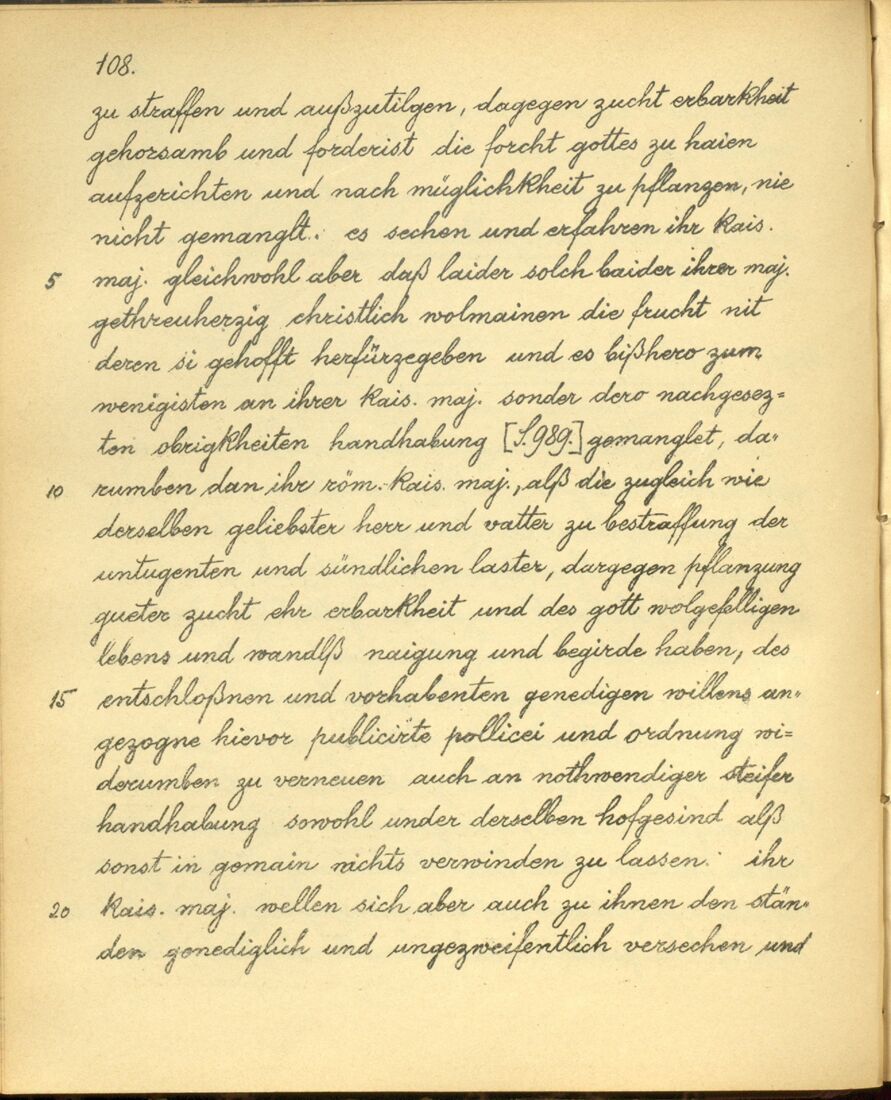 108.
zu straffen und außzutilgen, dagegen zucht erbarkheit
gehorsamb und forderist die forcht gottes zu haien
aufzerichten und nach müglichkheit zu pflanzen, nie
nicht gemanglt. es sechen und erfahren ihr kais.
5 maj. gleichwohl aber daß laider solch baider ihrer maj.
gethreuherzig christlich wolmainen die frucht nit
deren si gehofft herfürzegeben und es bißhero zum
wenigisten an ihrer kais. maj. sonder dero nachgesez=
ten obrigkheiten handhabung [S. 989.] gemanglet, da=
10 rumben dan ihr röm. kais. maj., alß die zugleich wie
derselben geliebster herr und vatter zu bestraffung der
untugenten und sündlichen laster, dargegen pflanzung
gueter zucht ehr erbarkheit und des gott wolgefelligen
lebens und wandlß naigung und begirde haben, des
15 entschloßnen und vorhabenten genedigen willens an=
gezogne hievor publicirte pollicei und ordnung wi=
derumben zu verneuen auch an nothwendiger steifer
handhabung sowohl under derselben hofgesind alß
sonst in gemain nichts verwinden zu lassen. ihr
20 kais. maj. wellen sich aber auch zu ihnen den stän=
den genediglich und ungezweifentlich versechen und